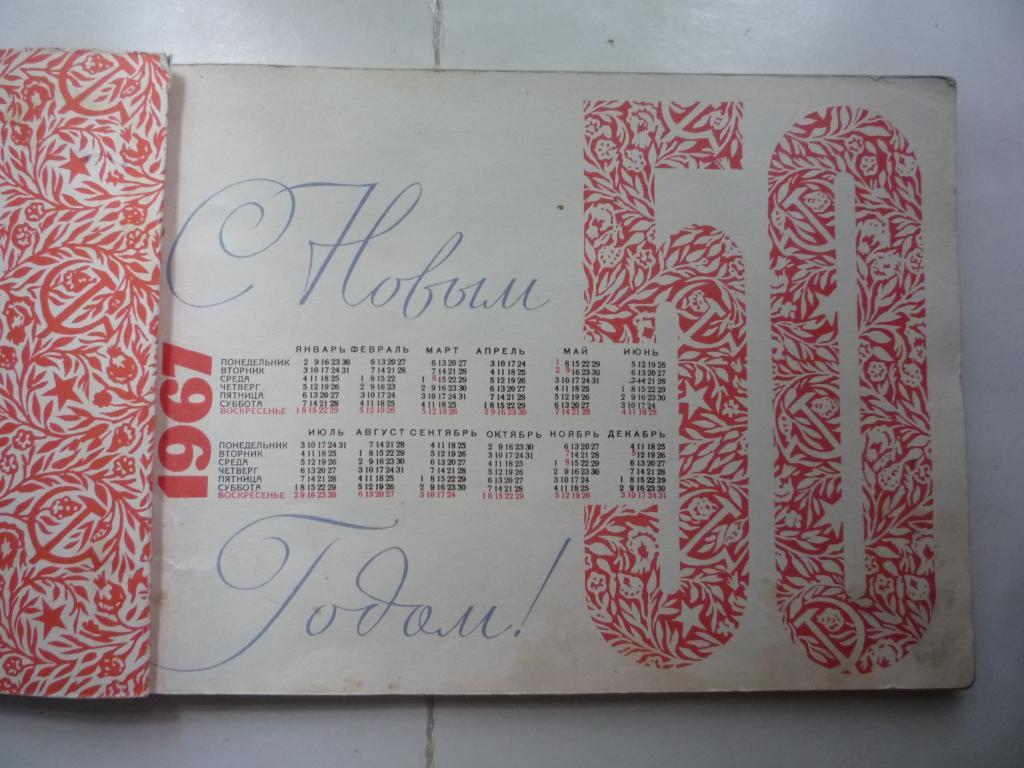 С Новым
50
1967
ЯНВАРЬ ФЕВРАЛЬ МАРТ АПРЕЛЬ МАЙ ИЮНЬ
ПОНЕДЕЛЬНИК 2 9 16 23 30 6 13 20 27 6 13 20 27 3 10 17 24 1 8 15 22 29 5 12 19 26
ВТОРНИК 3 10 17 24 31 7 14 21 28 7 14 21 28 4 11 18 25 2 9 16 23 30 6 13 20 27
СРЕДА 4 11 18 25 1 8 15 22 1 8 15 22 29 5 12 19 26 3 10 17 24 31 7 14 21 28
ЧЕТВЕРГ 5 12 19 26 2 9 16 23 2 9 16 23 30 6 13 20 27 4 11 18 25 1 8 15 22 29
ПЯТНИЦА 6 13 20 27 3 10 17 24 3 10 17 24 31 7 14 21 28 5 12 19 26 2 9 16 23 30
СУББОТА 7 14 21 28 4 11 18 25 4 11 18 25 1 8 15 22 29 6 13 20 27 3 10 17 24
ВОСКРЕСЕНЬЕ 1 8 15 22 29 5 12 19 26 5 12 19 26 2 9 16 23 30 7 14 21 28 4 11 18 25
ИЮЛЬ АВГУСТ СЕНТЯБРЬ ОКТЯБРЬ НОЯБРЬ ДЕКАБРЬ
ПОНЕДЕЛЬНИК 3 10 17 24 31 7 14 21 28 4 11 18 25 2 9 16 23 30 6 13 20 27 4 11 18 25
ВТОРНИК 4 11 18 25 1 8 15 22 29 5 12 19 26 3 10 17 24 31 7 14 21 28 5 12 19 26
СРЕДА 5 12 19 26 2 9 16 23 30 6 13 20 27 4 11 18 25 1 8 15 22 29 6 13 20 27
ЧЕТВЕРГ 6 13 20 27 3 10 17 24 31 7 14 21 28 5 12 19 26 2 9 16 23 30 7 14 21 28
ПЯТНИЦА 7 14 21 28 4 11 18 25 1 8 15 22 29 6 13 20 27 3 10 17 24 1 8 15 22 29
СУББОТА 1 8 15 22 29 5 12 19 26 2 9 16 23 30 7 14 21 28 4 11 18 25 2 9 16 23 30
ВОСКРЕСЕНЬЕ 2 9 16 23 30 6 13 20 27 3 10 17 24 1 8 15 22 29 5 12 19 26 3 10 17 24 31
Годом!